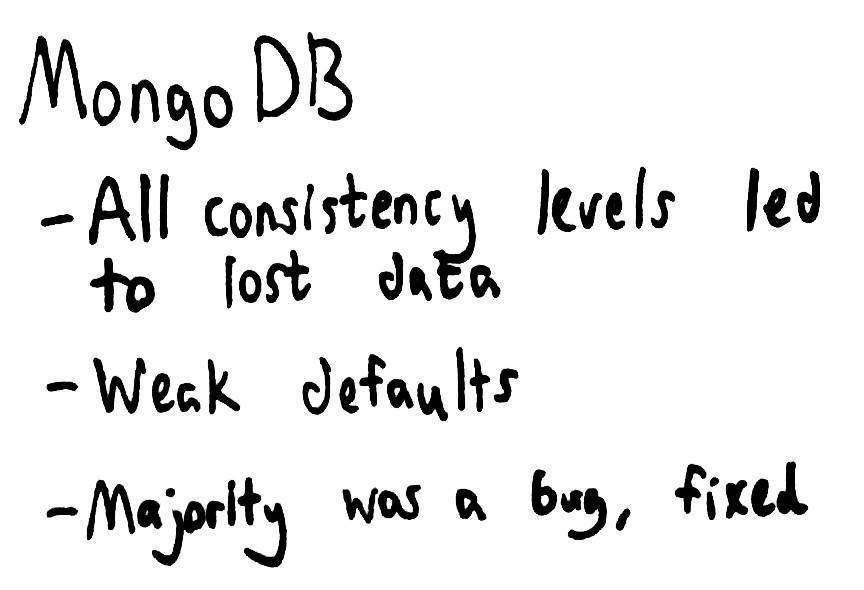 MongoDB
- All consistency levels led
to lost data
- Weak defaults
- Majority was a bug, fixed